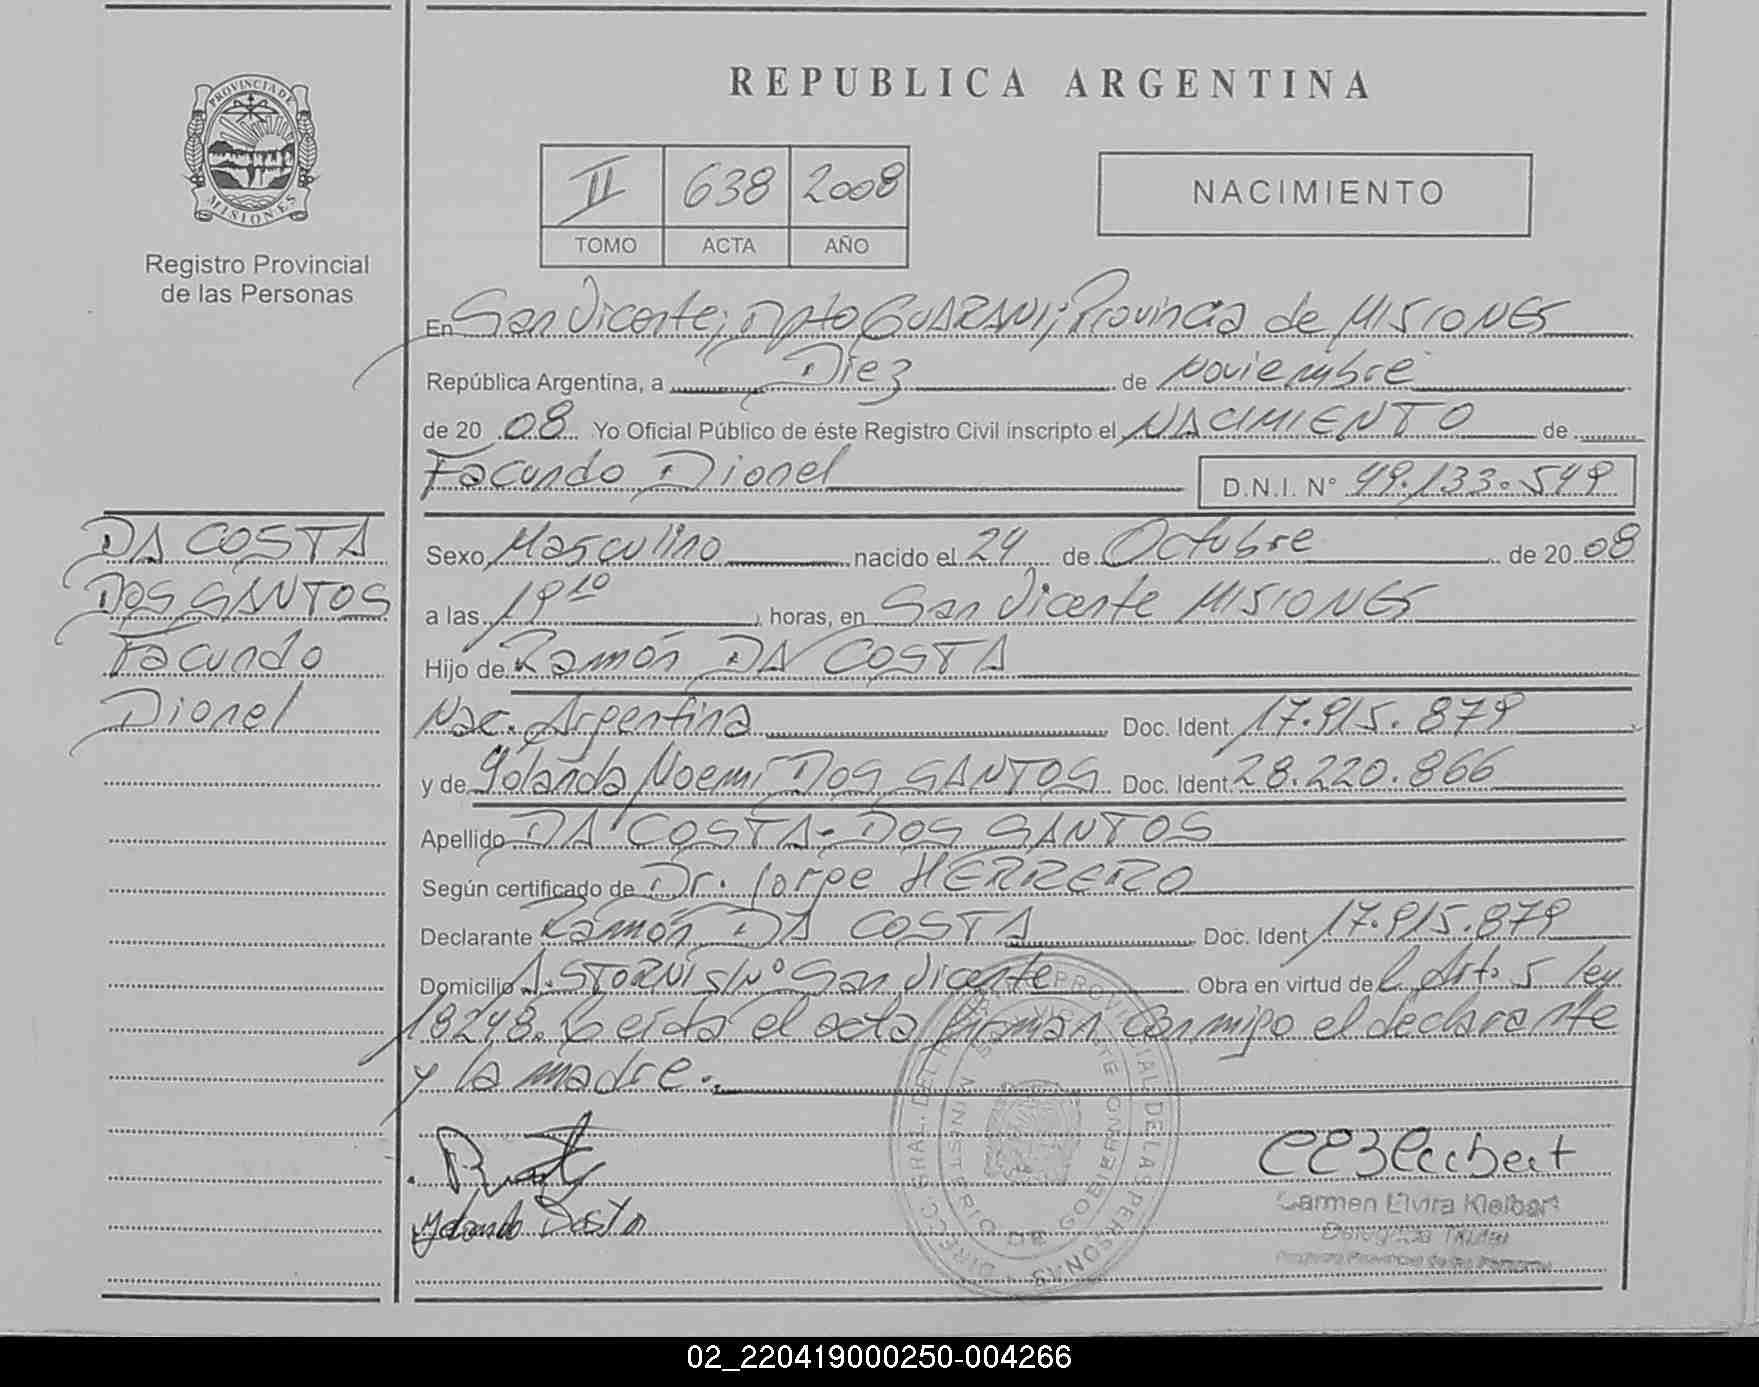 REPUBLICA ARGENTINA
PROVINCIA DE
MISIONES
Registro Provincial
de las Personas
II 638 2008
TOMO ACTA AÑO
NACIMIENTO
En San Vicente; Dpto GUARANI; Provincia de MISIONES
República Argentina, a Diez de Noviembre
de 20 08 Yo Oficial Público de éste Registro Civil inscripto el NACIMIENTO de
Facundo Dionel D.N.I. N° 49.133.549
DA COSTA
DOS SANTOS
Facundo
Dionel
Sexo Masculino nacido el 24 de Octubre de 20 08
a las 19 10 horas, en San Vicente MISIONES
Hijo de Ramón DA COSTA
Nac. Argentina Doc. Ident. 17.915.879
y de Yolanda Noemi DOS SANTOS Doc. Ident. 28.220.866
Apellido DA COSTA - DOS SANTOS
Según certificado de Dr. Jorge HERRERO
Declarante Ramón DA COSTA Doc. Ident 17.915.879
Domicilio A. STORNI S/N° San Vicente Obra en virtud de l Art. 5 ley
18248. Leída el acta firman conmigo el declarante
y la madre.
DIRECC. GRAL. DEL REGISTRO PROVINCIAL DE LAS PERSONAS
MINISTERIO DE GOBIERNO
SAN VICENTE
Carmen Elvira Kleibert
Delegada Titular
Registro Provincial de las Personas
02_220419000250-004266